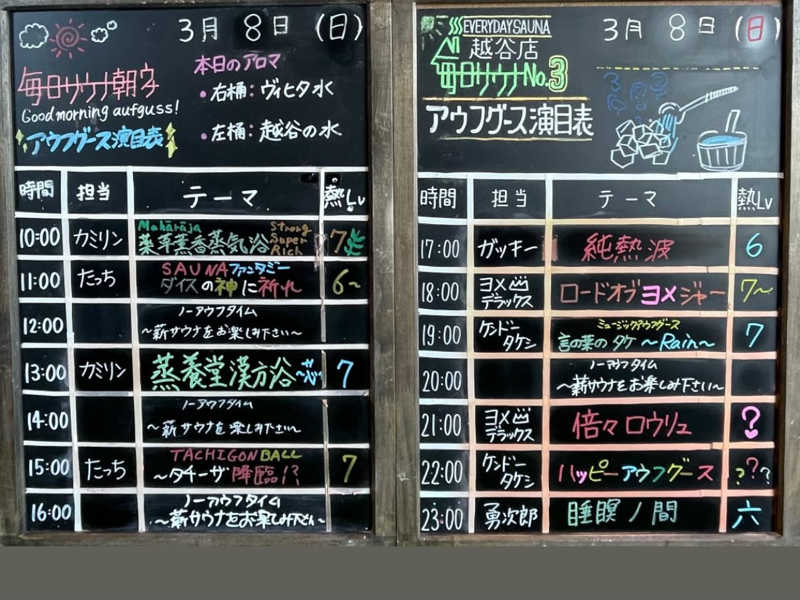 3月 8日 (日)
毎日サウナ朝字
Good morning aufguss!
アウフグース演目表
本日のアロマ
・右桶:ヴィヒタ水
・左桶:越谷の水
時間 担当 テーマ 熱Lv
10:00 カミリン Mahārāja 薬草薫香蒸気浴 Strong Super Rich 7
11:00 たっち SAUNAファンタジー
ダイスの神に祈れ 6~
12:00 ノーアウフタイム
~薪サウナをお楽しみ下さい~
13:00 カミリン 蒸養堂漢方浴 7
14:00 ノーアウフタイム
~薪サウナを楽しみ下さい~
15:00 たっち TACHIGON BALL
~タチーザ降臨!? 7
16:00 ノーアウフタイム
~薪サウナをお楽しみ下さい~
3月 8日 (日)
EVERYDAY SAUNA
越谷店
毎日サウナNo.3
アウフグース演目表
時間 担当 テーマ 熱Lv
17:00 ガッキー 純熱波 6
18:00 ヨメデラックス ロードオブヨメジャー 7~
19:00 ケンドータケシ ミュージックアウフグース
言の葉のタケ ~Rain~ 7
20:00 ノーアウフタイム
~薪サウナをお楽しみ下さい~
21:00 ヨメデラックス 倍々ロウリュ ?
22:00 ケンドータケシ ハッピーアウフグース ???
23:00 勇次郎 睡瞑ノ間 六